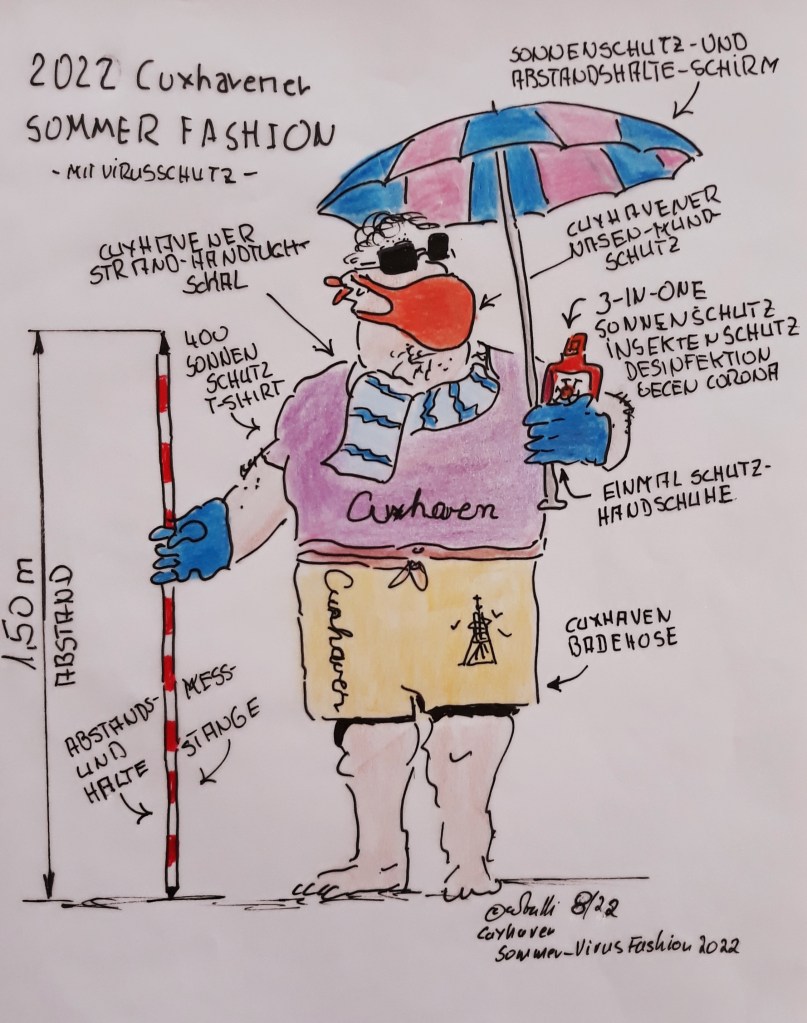 2022 Cuxhavener
SOMMER FASHION
- MIT VIRUSSCHUTZ -
SONNENSCHUTZ-UND
ABSTANDSHALTE-SCHIRM
CUXHAVENER
STRAND-HANDTUCH-
SCHAL
CUXHAVENER
NASEN-MUND-
SCHUTZ
3-IN-ONE
SONNENSCHUTZ
INSEKTENSCHUTZ
DESINFEKTION
GEGEN CORONA
400
SONNEN
SCHUTZ
T-SHIRT
EINMAL SCHUTZ-
HANDSCHUHE
Cuxhaven
Cuxhaven
CUXHAVEN
BADEHOSE
1,50 m
ABSTAND
ABSTANDS-
UND
HALTE
MESS-
STANGE
8/22
Cuxhaven
Sommer-Virus Fashion 2022